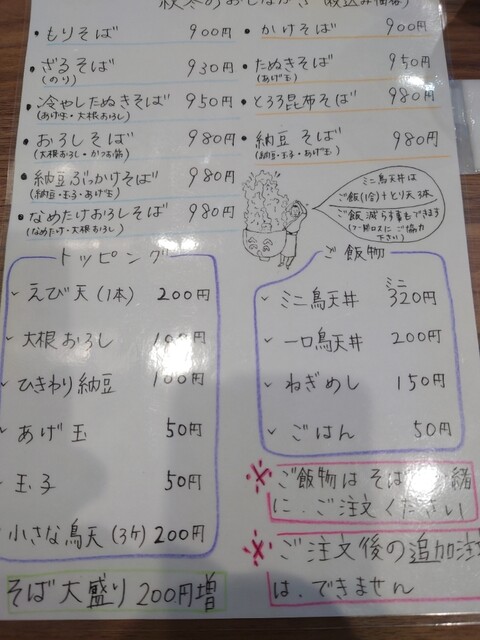 秋冬のおしながき (税込み価格)
・もりそば 900円
・ざるそば 930円
(のり)
・冷やしたぬきそば 950円
(あげ玉・大根おろし)
・おろしそば 980円
(大根おろし・かつお節)
・納豆ぶっかけそば 980円
(納豆・玉子・あげ玉)
・なめたけおろしそば 980円
(なめたけ・大根おろし)
・かけそば 900円
・たぬきそば 950円
(あげ玉)
・とろろ昆布そば 980円
・納豆そば 980円
(納豆・玉子・あげ玉)
ミニ鳥天丼は
ご飯(1合)+とり天3本
ご飯減らす事もできます
(フードロスにご協力
下さい)
トッピング
えび天(1本) 200円
大根おろし 100円
ひきわり納豆 100円
あげ玉 50円
玉子 50円
小さな鳥天(3ヶ) 200円
そば大盛り 200円増
ご飯物
ミニ鳥天丼 320円
一口鳥天丼 200円
ねぎめし 150円
ごはん 50円
※ご飯物はそば 緒
に、ご注文ください
※ご注文後の追加注
は、できません